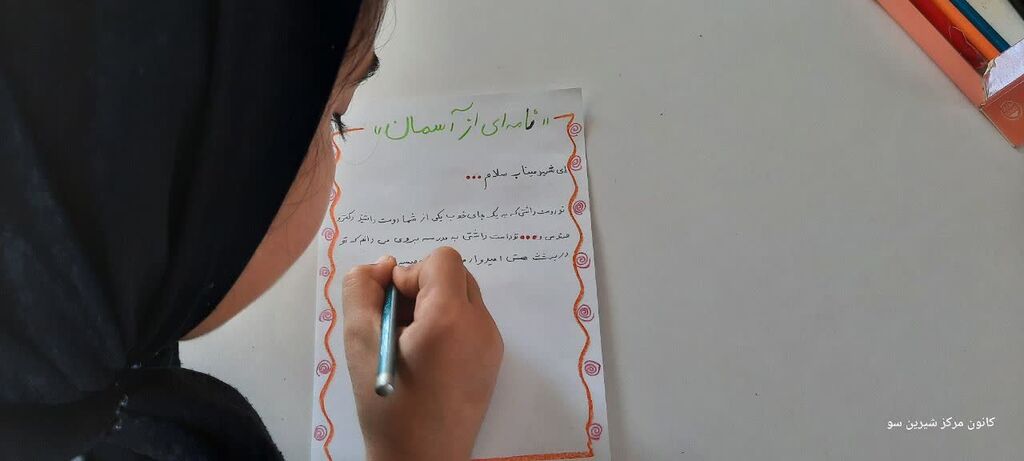 «نامه‌ای از آسمان»
ای شهید میناب سلام...
تو دوست داشتی که به یک جای خوب یکی از شما دوست داشتید دکتر و
و ... تو دوست داشتی به مدرسه بروی می دانم که تو
در بهشت هستی امیدوار
کانون مرکز شیرین سو